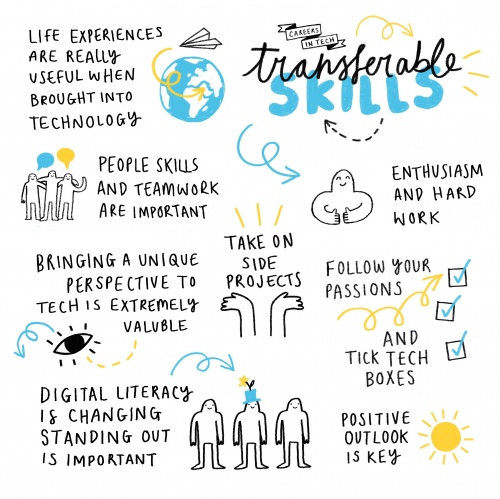 CAREERS
IN TECH
transferable
SKILLS
LIFE EXPERIENCES
ARE REALLY
USEFUL WHEN
BROUGHT INTO
TECHNOLOGY
PEOPLE SKILLS
AND TEAMWORK
ARE IMPORTANT
ENTHUSIASM
AND HARD
WORK
TAKE ON
SIDE
PROJECTS
BRINGING A UNIQUE
PERSPECTIVE TO
TECH IS EXTREMELY
VALUBLE
FOLLOW YOUR
PASSIONS
AND
TICK TECH
BOXES
DIGITAL LITERACY
IS CHANGING
STANDING OUT
IS IMPORTANT
POSITIVE
OUTLOOK
IS KEY